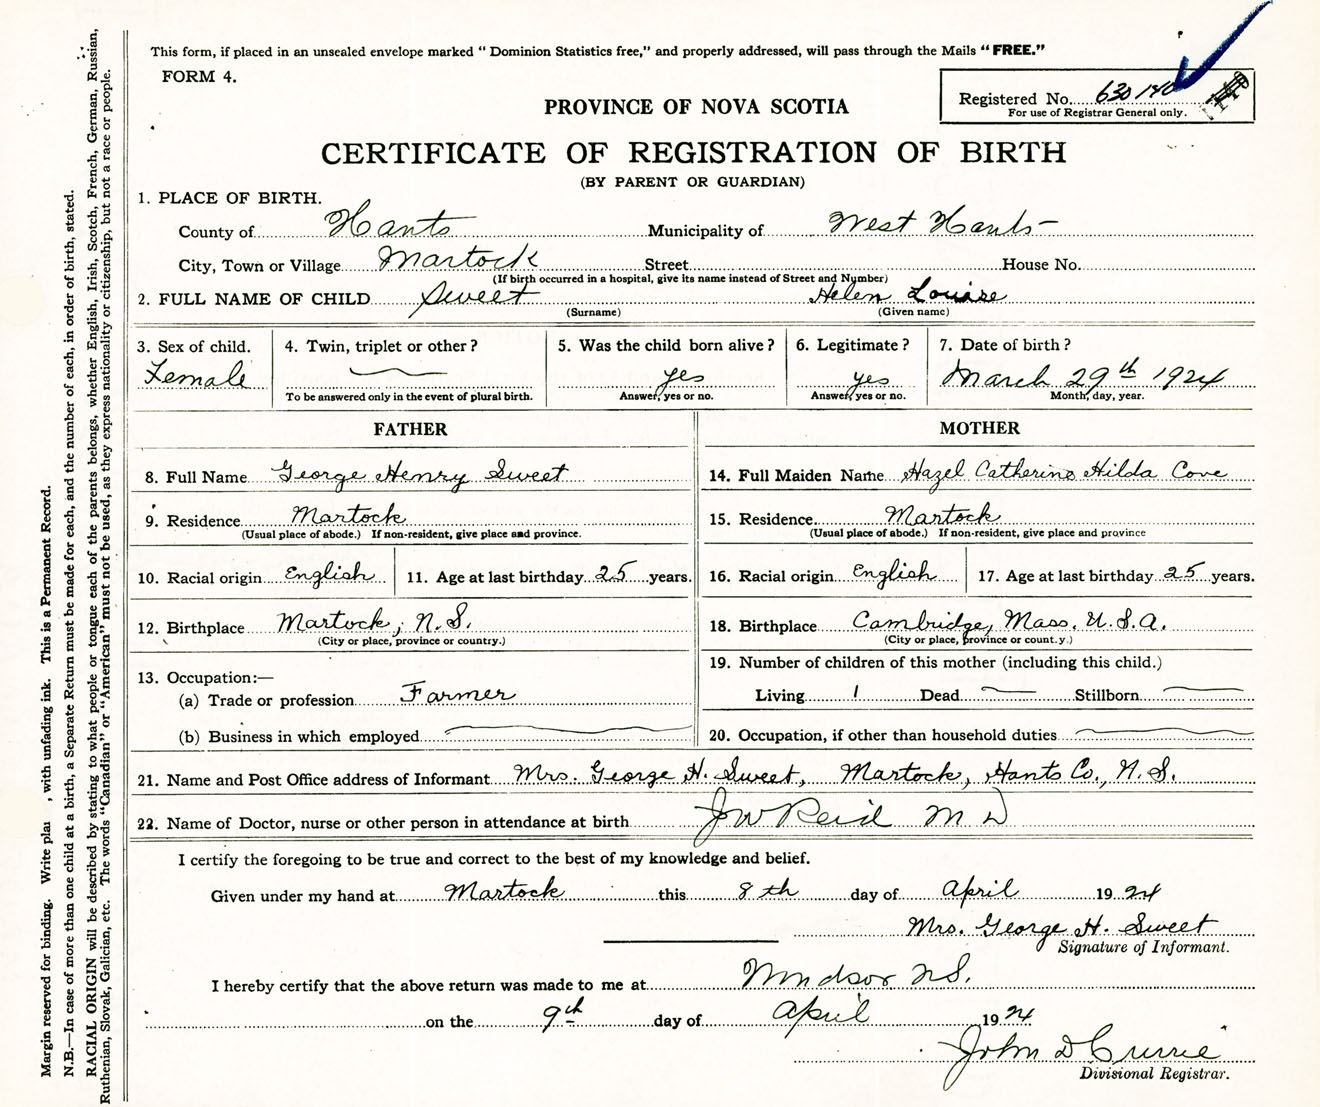 This form, if placed in an unsealed envelope marked "Dominion Statistics free," and properly addressed, will pass through the Mails "FREE."
FORM 4.
Registered No. 630140
For use of Registrar General only.
PROVINCE OF NOVA SCOTIA
CERTIFICATE OF REGISTRATION OF BIRTH
(BY PARENT OR GUARDIAN)
1. PLACE OF BIRTH.
County of Hants Municipality of West Hants
City, Town or Village Martock Street House No.
(If birth occurred in a hospital, give its name instead of Street and Number)
2. FULL NAME OF CHILD Sweet Helen Louise
(Surname) (Given name)
3. Sex of child. 4. Twin, triplet or other? 5. Was the child born alive? 6. Legitimate? 7. Date of birth?
Female yes yes March 29th 1924
To be answered only in the event of plural birth. Answer, yes or no. Answer, yes or no. Month, day, year.
FATHER MOTHER
8. Full Name George Henry Sweet 14. Full Maiden Name Hazel Catherine Hilda Cove
9. Residence Martock 15. Residence Martock
(Usual place of abode.) If non-resident, give place and province. (Usual place of abode.) If non-resident, give place and province
10. Racial origin English 11. Age at last birthday 25 years. 16. Racial origin English 17. Age at last birthday 25 years.
12. Birthplace Martock, N.S. 18. Birthplace Cambridge, Mass. U.S.A.
(City or place, province or country.) (City or place, province or count.y.)
13. Occupation:— 19. Number of children of this mother (including this child.)
(a) Trade or profession Farmer Living 1 Dead Stillborn
(b) Business in which employed 20. Occupation, if other than household duties
21. Name and Post Office address of Informant Mrs. George H. Sweet, Martock, Hants Co., N.S.
22. Name of Doctor, nurse or other person in attendance at birth J W Reid M D
I certify the foregoing to be true and correct to the best of my knowledge and belief.
Given under my hand at Martock this 8th day of April 1924
Mrs. George H. Sweet
Signature of Informant.
I hereby certify that the above return was made to me at Windsor N.S.
on the 9th day of April 1924
John D Currie
Divisional Registrar.
Margin reserved for binding. Write plai , with unfading ink. This is a Permanent Record.
N.B.—In case of more than one child at a birth, a Separate Return must be made for each, and the number of each, in order of birth, stated.
RACIAL ORIGIN will be described by stating to what people or tongue each of the parents belongs, whether English, Irish, Scotch, French, German, Russian,
Ruthenian, Slovak, Galician, etc. The words "Canadian" or "American" must not be used, as they express nationality or citizenship, but not a race or people.